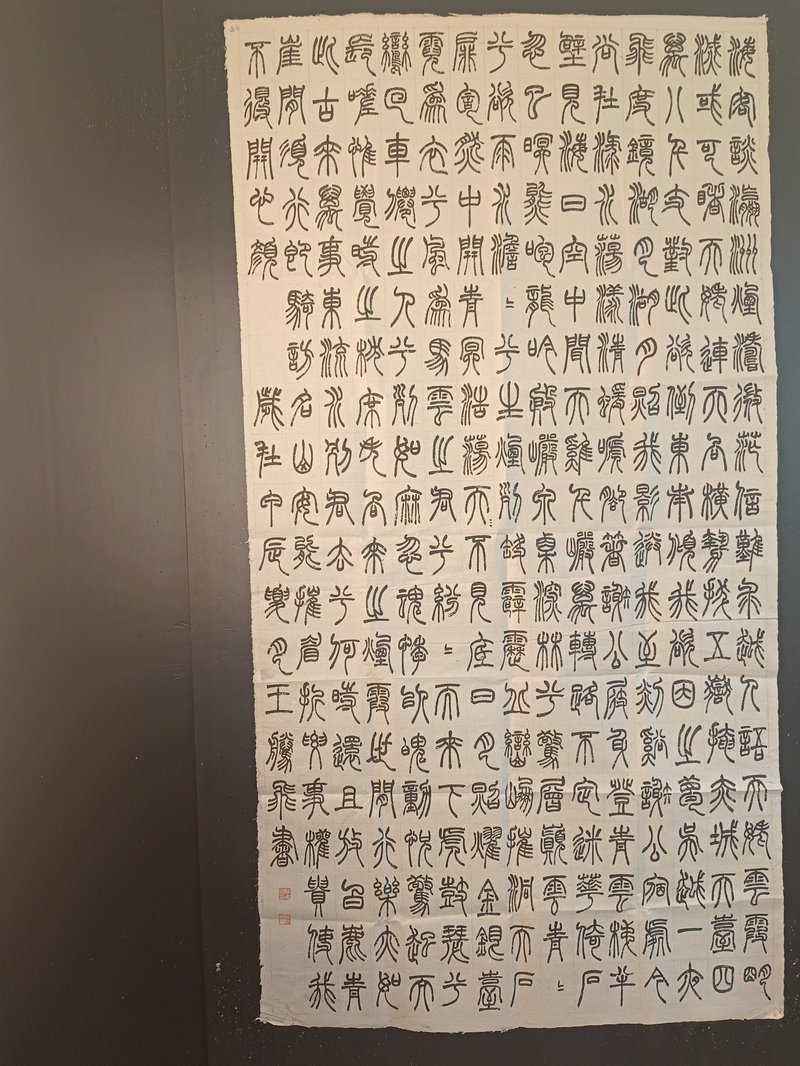 海客談瀛洲煙濤微茫信難求越人語天姥雲霞明
滅或可睹天姥連天向橫勢拔五嶽掩赤城天臺四
萬八千丈對此欲倒東南傾我欲因之夢吳越一夜
飛度鏡湖月湖月照我影送我至剡溪謝公宿處今
尚在淥水蕩漾清猿啼腳著謝公屐身登青雲梯半
壁見海日空中聞天雞千巖萬轉路不定迷花倚石
忽已暝熊咆龍吟殷巖泉慄深林兮驚層巔雲青〻
兮欲雨水澹〻兮生煙列缺霹靂丘巒崩摧洞天石
扉訇然中開青冥浩蕩天不見底日月照耀金銀臺
霓爲衣兮風爲馬雲之君兮紛〻而來下虎鼓瑟兮
鸞回車僊之人兮列如麻忽魂悸以魄動怳驚起而
長嗟惟覺時之枕席失向來之煙霞世間行樂亦如
此古來萬事東流水別君去兮何時還且放白鹿青
崖間須行即騎訪名山安能摧眉折腰事權貴使我
不得開心顏
歲在甲辰夏月王騰飛書